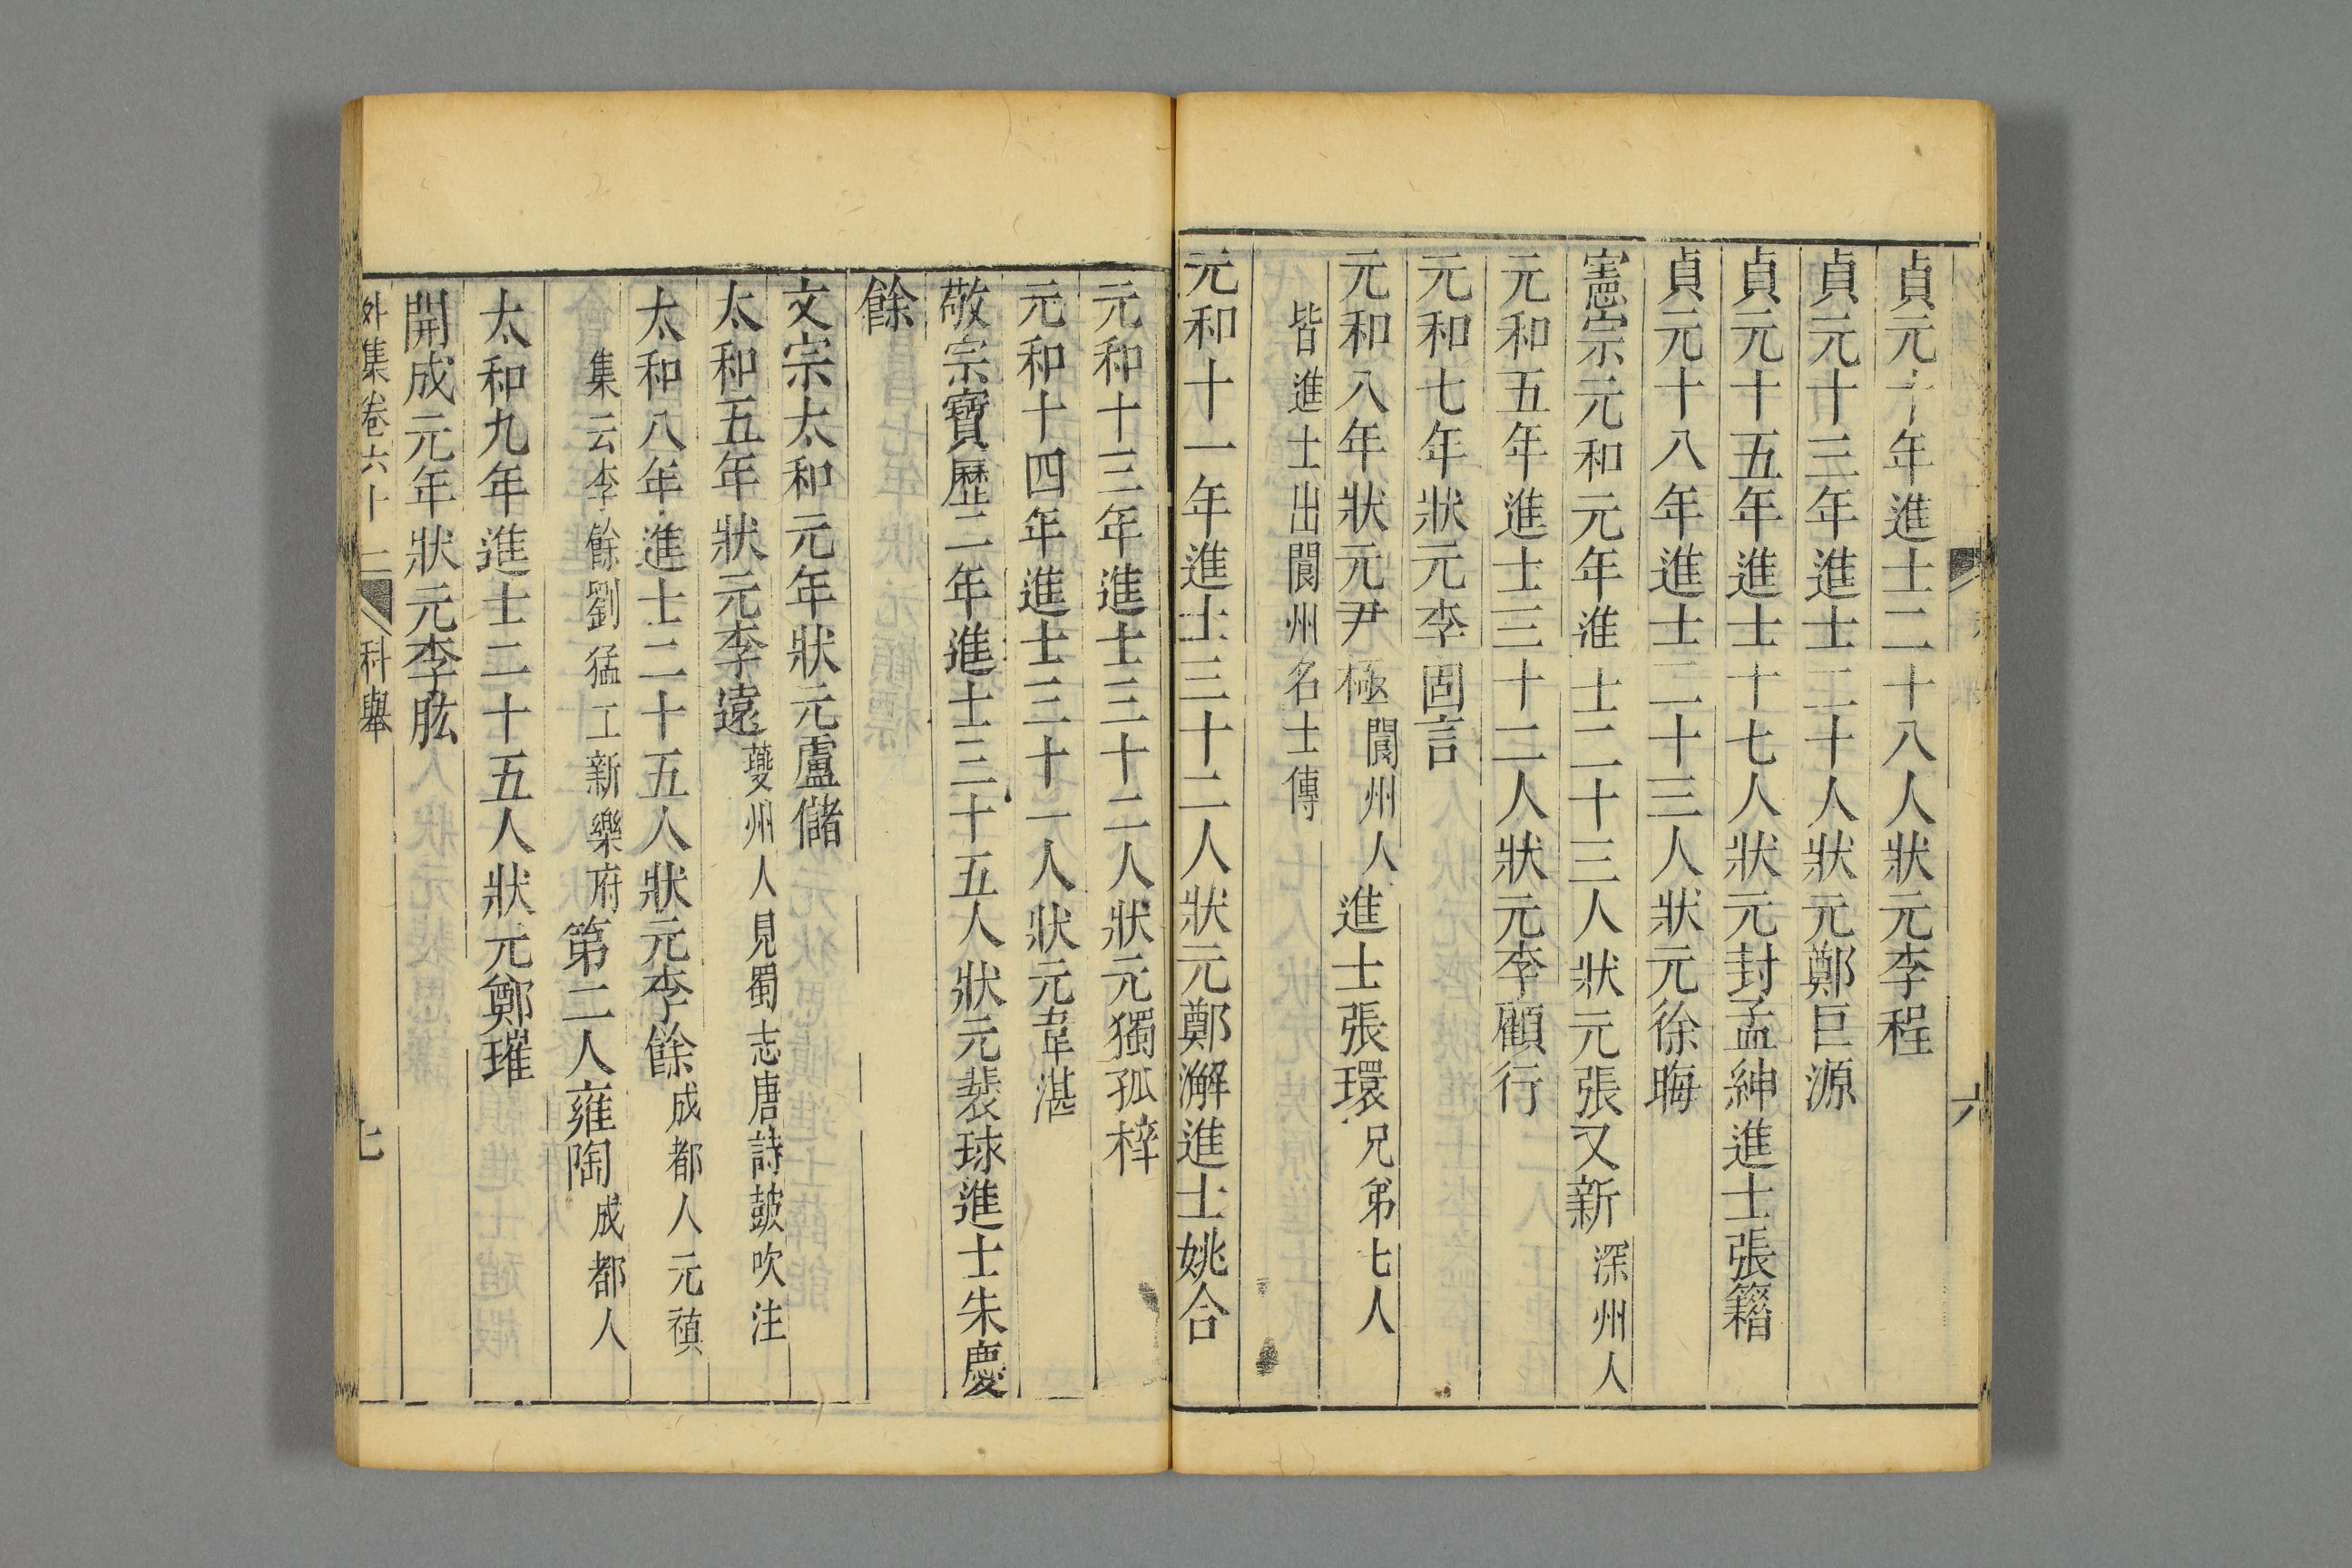 六
貞元十年進士二十八人狀元李程
貞元十三年進士二十人狀元鄭巨源
貞元十五年進士十七人狀元封孟紳進士張籍
貞元十八年進士二十三人狀元徐晦
憲宗元和元年進士二十三人狀元張又新深州人
元和五年進士三十二人狀元李顧行
元和七年狀元李固言
元和八年狀元尹極閬州人進士張環兄弟七人
皆進士出閬州名士傳
元和十一年進士三十二人狀元鄭澥進士姚合
元和十三年進士三十二人狀元獨孤梓
元和十四年進士三十一人狀元韋湛
敬宗寶歷二年進士三十五人狀元裴球進士朱慶
餘
文宗太和元年狀元盧儲
太和五年狀元李遠夔州人見蜀志唐詩鼓吹注
太和八年進士二十五人狀元李餘成都人元稹
集云李餘劉猛工新樂府第二人雍陶成都人
太和九年進士二十五人狀元鄭璀
開成元年狀元李肱
外集卷六十二 科舉 七